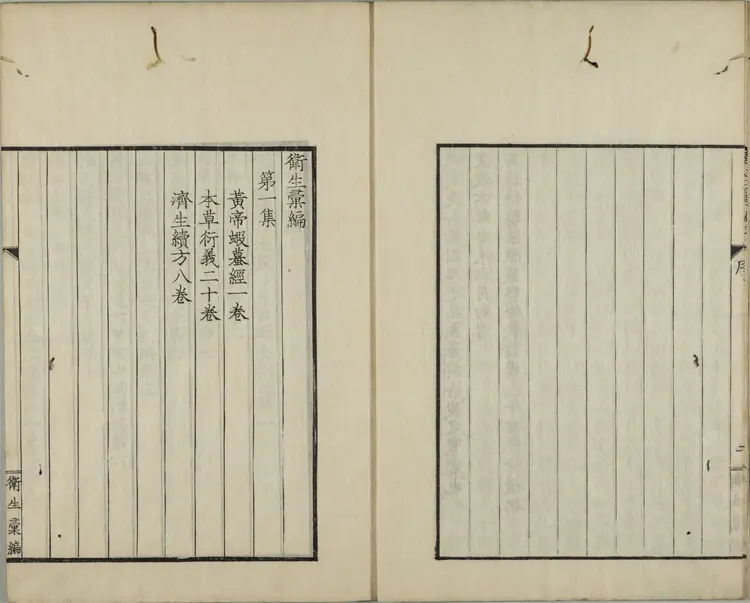 序
衛生彙編
第一集
黃帝蝦蟇經一卷
本草衍義二十卷
濟生續方八卷
衛生彙編